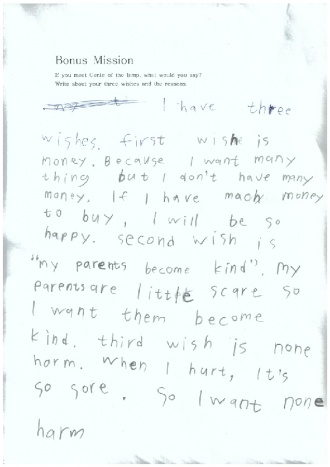 Bonus Mission
If you meet Genie of the lamp, what would you say?
Write about your three wishes and the reasons.
I have three
wishes. first wish is
money. Because I want many
thing but I don't have many
money. If I have mach money
to buy, I will be so
happy. second wish is
"my parents become kind". my
parents are little scare so
I want them become
kind. third wish is none
harm. when I hurt, It's
so sore. So I want none
harm